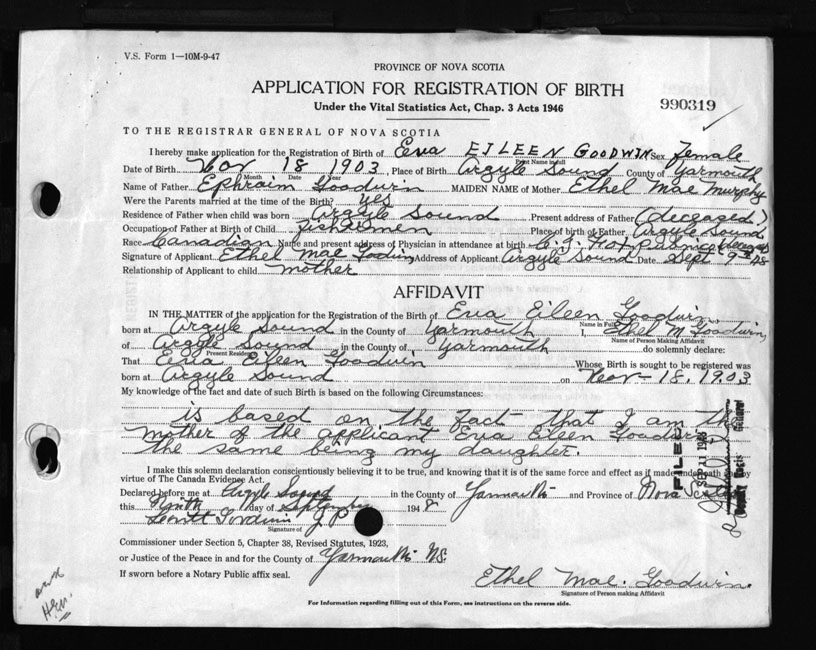 V.S. Form 1—10M-9-47
PROVINCE OF NOVA SCOTIA
APPLICATION FOR REGISTRATION OF BIRTH
Under the Vital Statistics Act, Chap. 3 Acts 1946
990319
TO THE REGISTRAR GENERAL OF NOVA SCOTIA
I hereby make application for the Registration of Birth of Eva EILEEN GOODWIN Sex female
Print Name in full
Date of Birth Nov 18 1903, Place of Birth Argyle Sound County of Yarmouth
Month Date Year
Name of Father Ephraim Goodwin MAIDEN NAME of Mother Ethel Mae Murphy
Were the Parents married at the time of the Birth? yes
Residence of Father when child was born Argyle Sound Present address of Father (deceased)
Occupation of Father at Birth of Child fishermen Place of birth of Father Argyle Sound
Race Canadian Name and present address of Physician in attendance at birth C. J. (deceased)
Signature of Applicant Ethel Mae Goodwin Address of Applicant Argyle Sound Date Sept 9th 48
Relationship of Applicant to child mother
AFFIDAVIT
IN THE MATTER of the application for the Registration of the Birth of Eva Eileen Goodwin
Name in Full
born at Argyle Sound in the County of Yarmouth I, Ethel M. Goodwin,
Name of Person Making Affidavit
of Argyle Sound in the County of Yarmouth do solemnly declare:
Present Residence
That Eva Eileen Goodwin Whose Birth is sought to be registered was
born at Argyle Sound on Nov - 18, 1903
My knowledge of the fact and date of such Birth is based on the following Circumstances:
is based on the fact that I am the
mother of the applicant Eva Eileen Goodwin
the same being my daughter.
I make this solemn declaration conscientiously believing it to be true, and knowing that it is of the same force and effect as if made under oath by
virtue of The Canada Evidence Act.
Declared before me at Argyle Sound in the County of Yarmouth and Province of Nova Scotia
this Ninth day of September 1948
Goodwin J P
Signature of
Commissioner under Section 5, Chapter 38, Revised Statutes, 1923,
or Justice of the Peace in and for the County of Yarmouth N.S.
If sworn before a Notary Public affix seal.
Ethel Mae. Goodwin.
Signature of Person making Affidavit
For Information regarding filling out of this Form, see instructions on the reverse side.
FILED
SEP 11